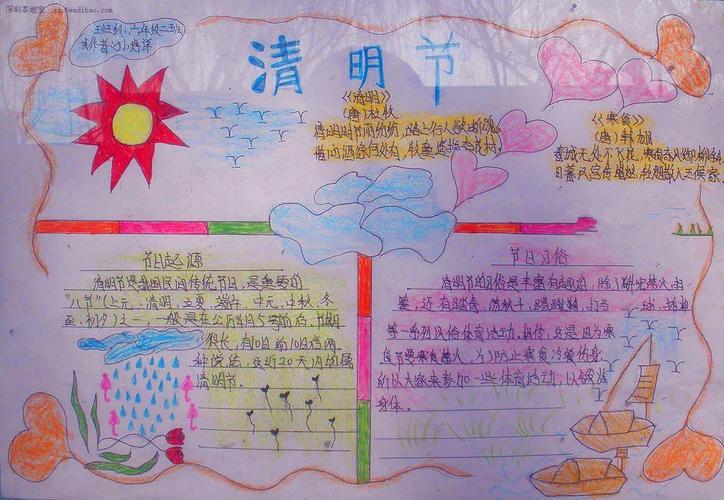 深圳本地宝 sz.bendibao.com
班级:六年级二班
清明节
《清明》
(唐)杜牧
清明时节雨纷纷,路上行人欲断魂,
借问酒家何处为,牧童遥指杏花村。
《寒食》
(唐)韩翃
春城无处不飞花,寒食东风御柳斜
日暮汉宫传蜡烛,轻烟散入五侯家
节日起源
清明节是我国民间传统节日,是重要的
"八节"(上元、清明、立夏、端午、中元、中秋、冬
至、初夕)之一,一般是在公历4月5号前后,节期
很长,有10日前10日后两
种说法,这近20天内均属
清明节。
节日习俗
清明节的习俗是丰富有趣的,除了讲究禁火、扫
墓,还有踏青、荡秋千、踢蹴鞠、打马 球、插柳
等一系列风俗体育活动。相传,这是因为寒
食节要寒食禁火,为了防止寒食冷餐伤身,
所以大家来参加一些体育活动,以锻炼
身体。